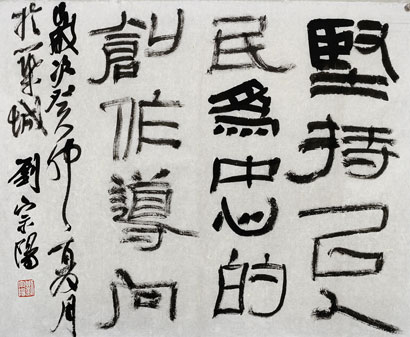 堅持以人
民爲中心的
創作導向
歲次癸卯之夏月
於城劉宗陽